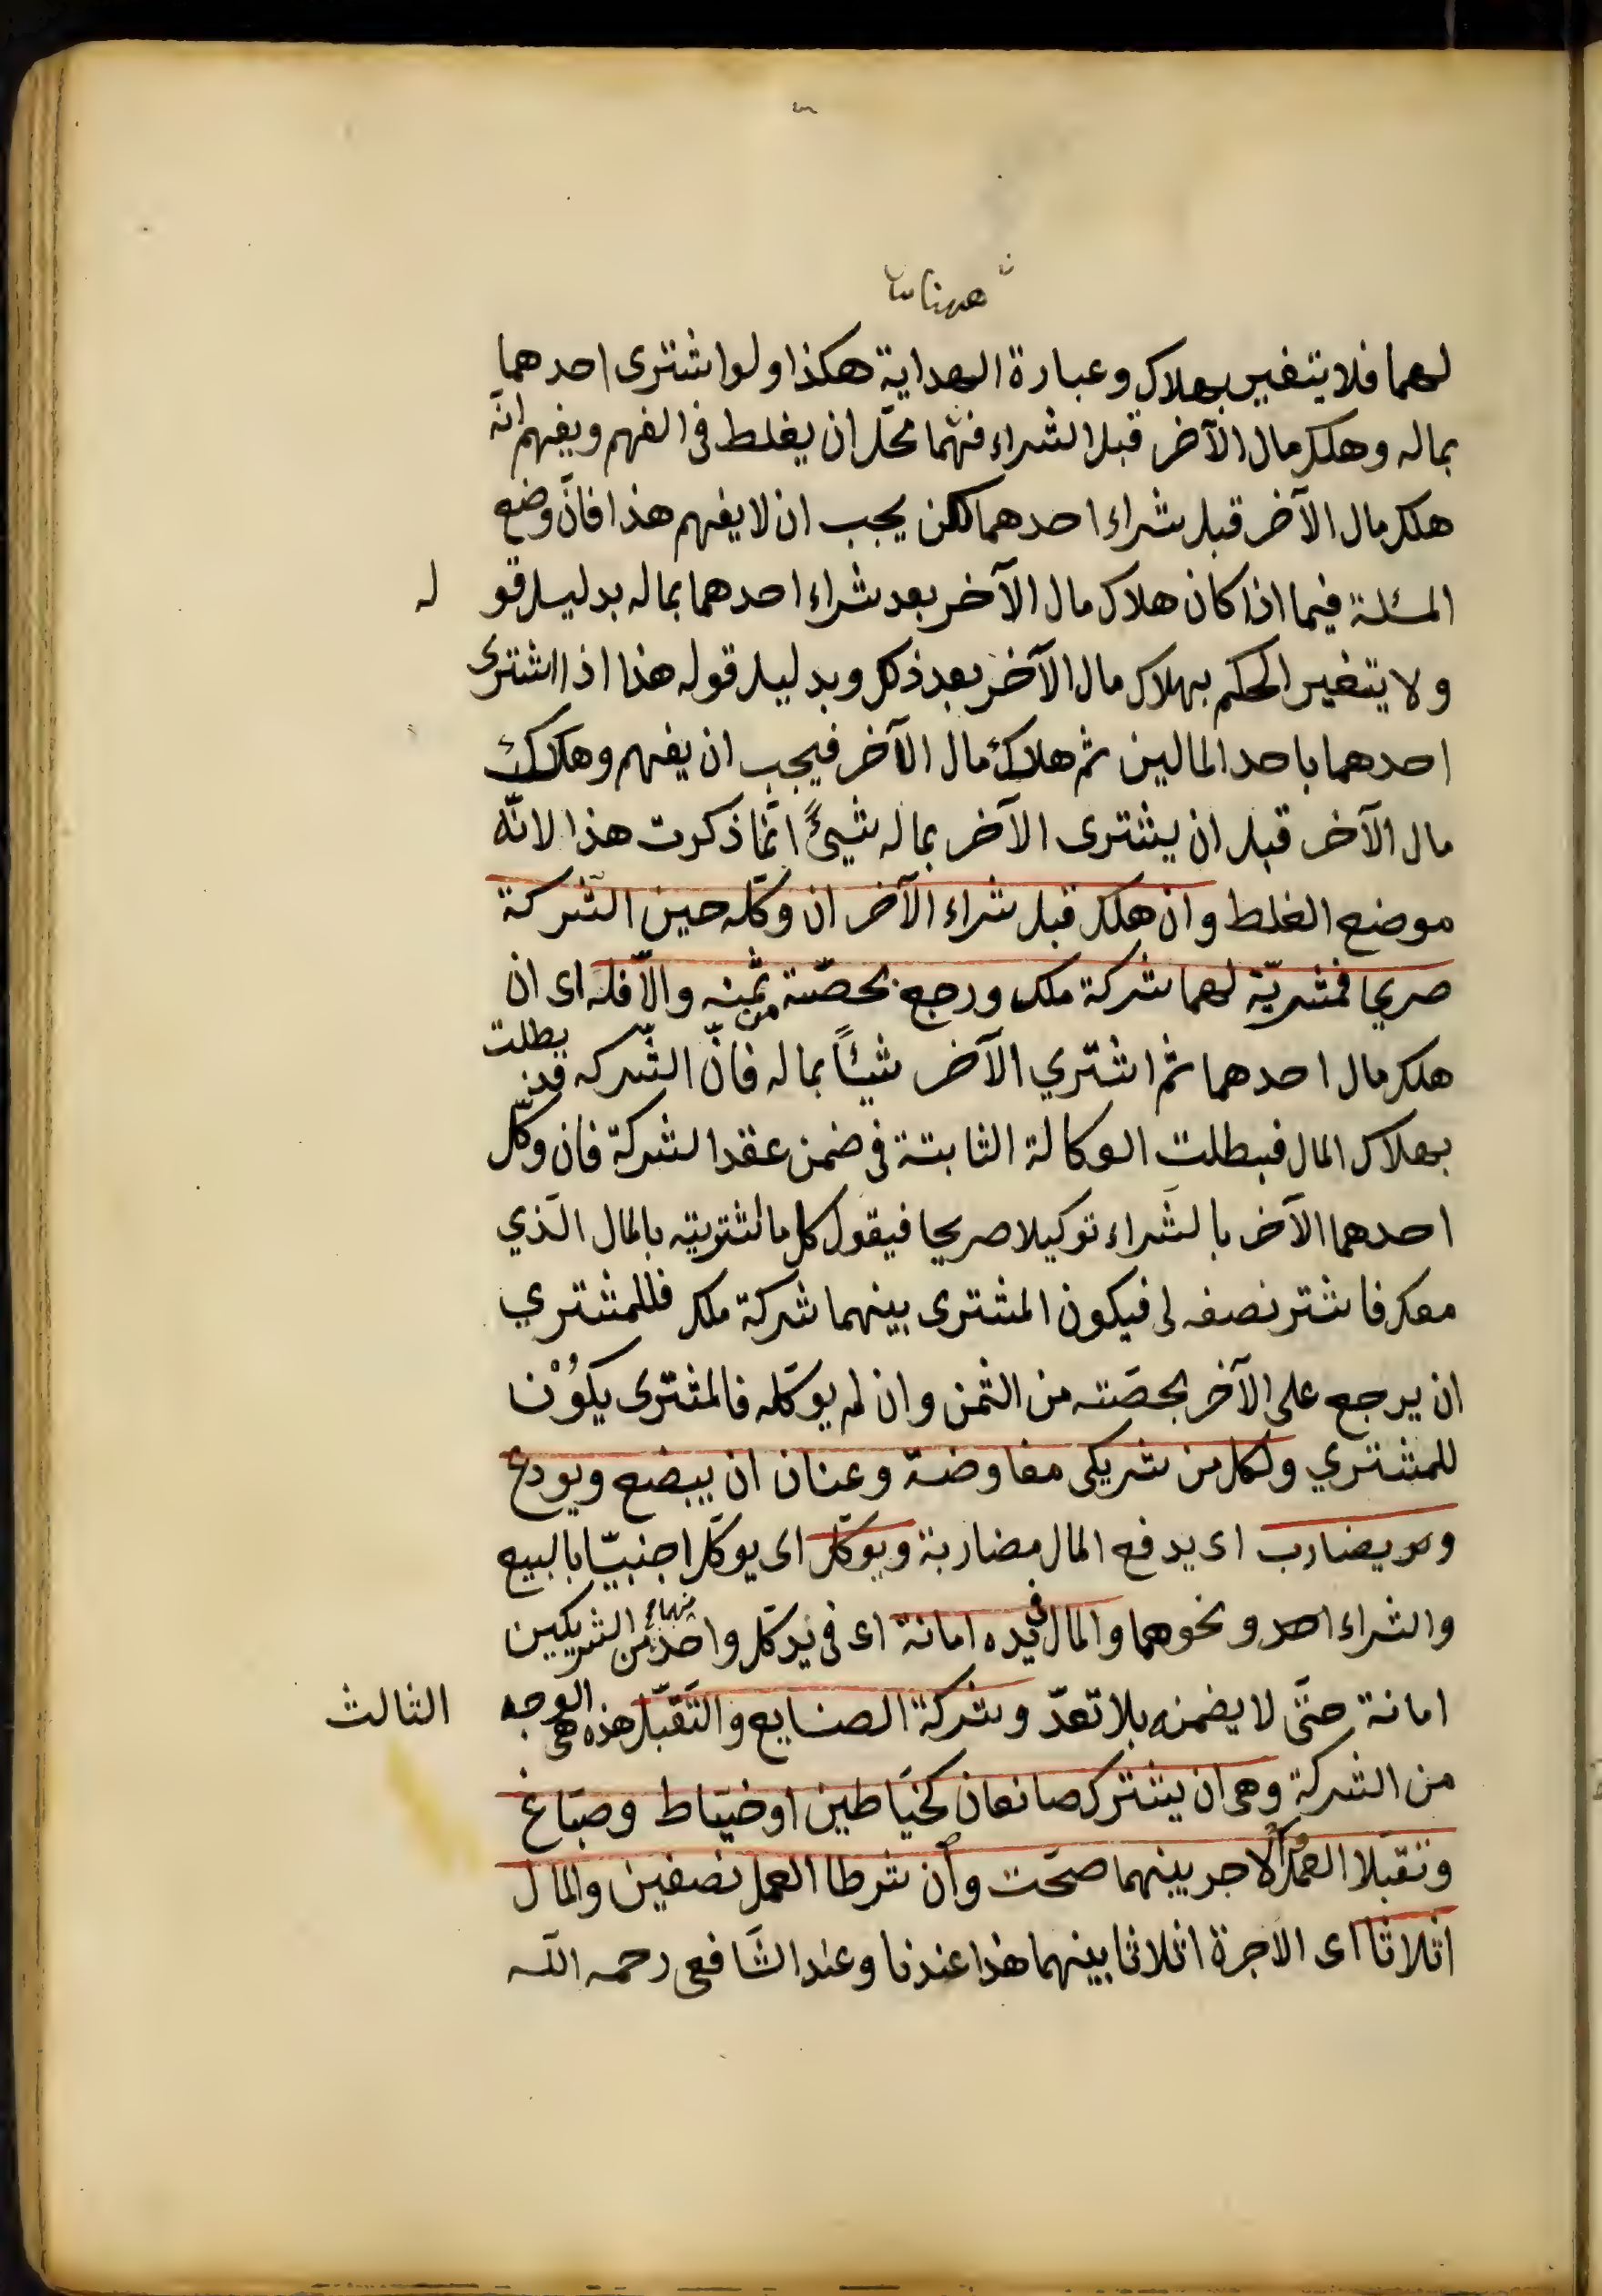 ههنا
لهما فلا يتغير بهلاك وعبارة الهداية هكذا ولو اشترى احدهما
بماله وهلك مال الآخر قبل الشراء فثمّا محل ان يغلط فى الفهم ويفهم انّه
هلك مال الآخر قبل شراء احدهما لكن يجب ان لا يفهم هذا فانّ وضع
المسئلة فيما اذا كان هلاك مال الآخر بعد شراء احدهما بماله بدليل قو له
ولا يتغير الحكم بهلاك مال الآخر بعد ذلك وبدليل قوله هذا اذا اشترى
احدهما باحد المالين ثم هلاك مال الآخر فيجب ان يفهم وهلاك
مال الآخر قبل ان يشترى الآخر بماله شيئً انّما ذكرت هذا لانّه
موضع الغلط وان هلك قبل شراء الآخر ان وكّله حين الشّركة
صريحا فمشريّه لهما شركة ملك ورجع بحصّة من ثمنه والّا فله اى ان
هلك مال احدهما ثم اشتري الآخر شيئاً بماله فانّ الشّركه قد بطلت
بهلاك المال فبطلت الوكالة الثابتة فى ضمن عقد الشركة فان وكّل
احدهما الآخر بالشراء توكيلا صريحا فيقول كل ما اشتريته بالمال الّذي
معك فاشتر نصفه لى فيكون المشترى بينهما شركة ملك فللمشتري
ان يرجع على الآخر بحصّته من الثمن وان لم يوكّله فالمشترى يكوُنْ
للمشتري ولكل من شريكى مفاوضة وعنان ان يبضع ويودع
و يضارب اى يدفع المال مضاربة ويوكّل اى يوكّل اجنبيّا بالبيع
والشراء احد ونحوهما والمال فى يده امانة اى فى يد كل واحد منهما من الشريكين
امانة حتّى لا يضمنه بلا تعدّ وشركة الصنايع والتّقبّل هذه هى الوجه الثالث
من الشركة وهى ان يشترك صانعان كخيّاطين او خيّاط وصبّاغ
وتقبّلا العمل لاجر بينهما صحّت وان شرطا العمل نصفين والمال
اثلاثا اى الاجرة اثلاثا بينهما هذا عندنا وعند الشّافعى رحمه اللّه